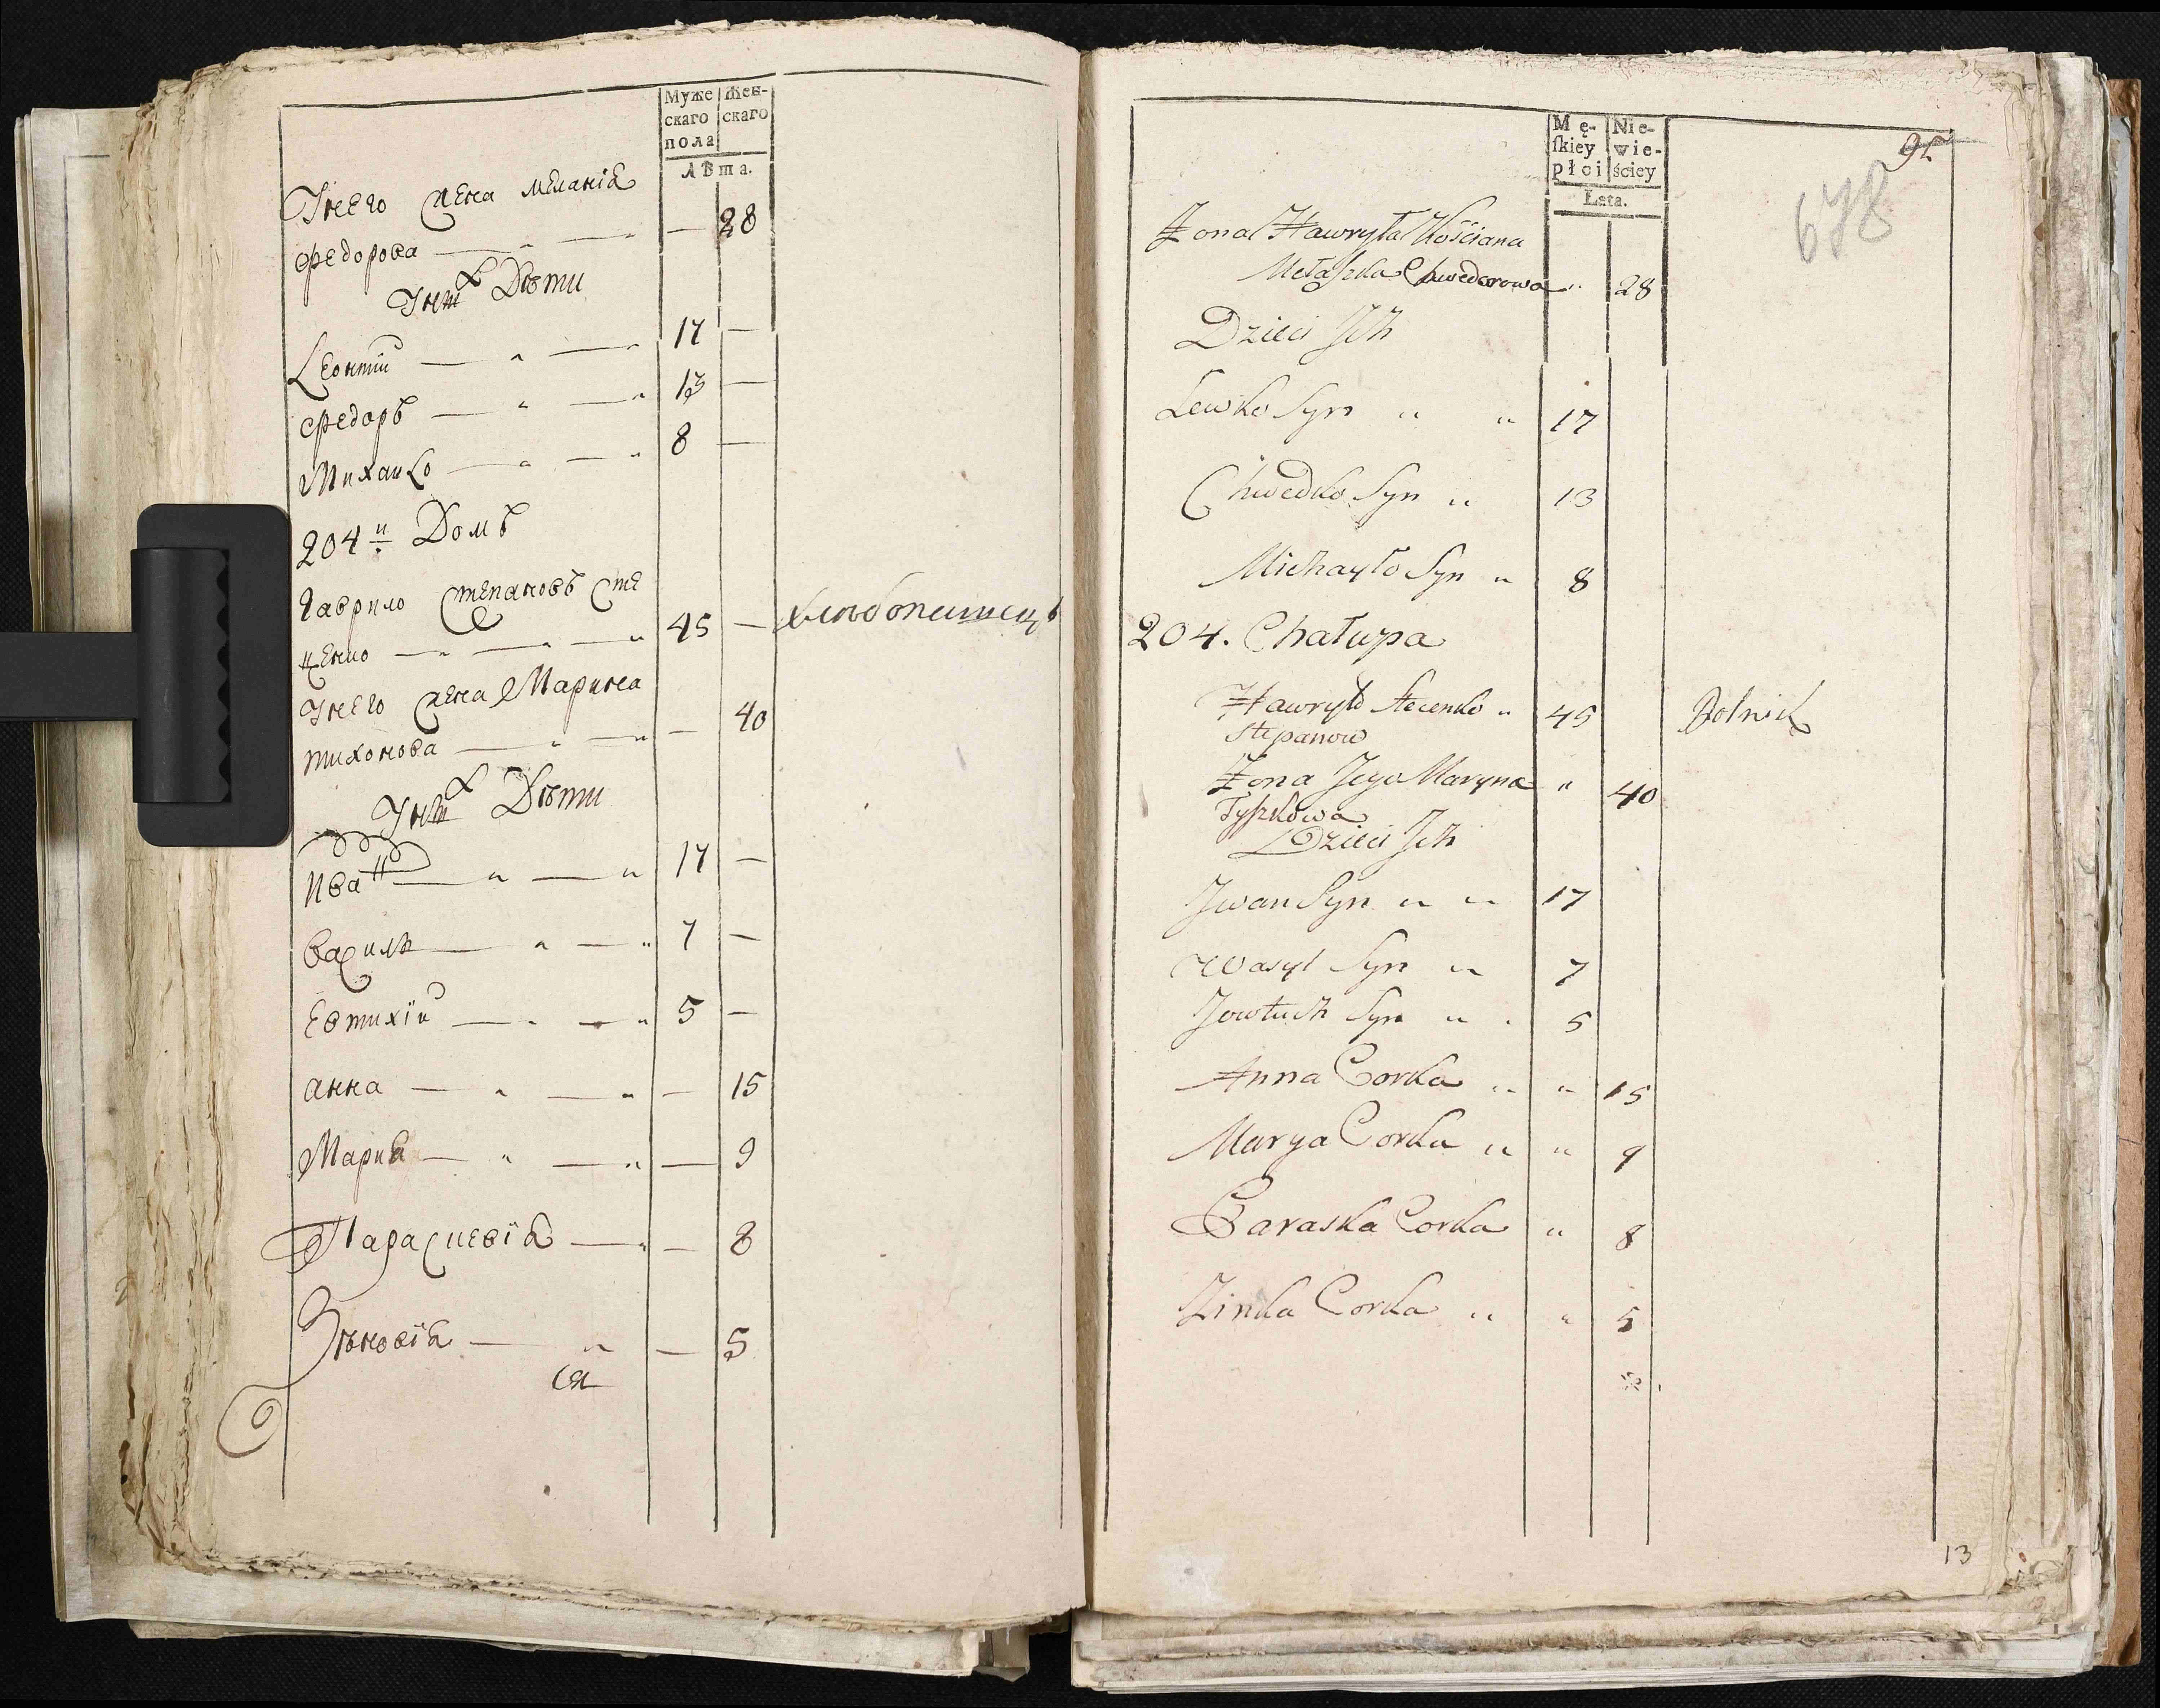 Муже
скаго
пола
Жен-
скаго
Лѣта.
Унего жена мѣланія
федорова — 28
Унихъ Дѣти
Леонтій 17 —
Федоръ 13 —
Михаило 8 —
204й Домъ
Гаврило Степановъ Сте
ценко 45 — хлѣбопашецъ
Унего жена Марина
тихонова — 40
Унихъ Дѣти
Иванъ 17 —
Василь 7 —
Евтихій 5 —
анна — 15
Мария — 9
Параскевія — 8
Зѣновія — 5
Mę-
ſkiey
płci
Nie-
wie-
ściey
Lata.
95
678
Żona Hawryła Kościana
Małaszka Chwedorowa " 28
Dzieci Jch
Lewko Syn " " 17
Chwedko Syn " 13
Michayło Syn " 8
204. Chałupa
Hawryło Stecenko " 45 Rolnik
Stepanow
Żona Jego Maryna " 40
Tyszkowa
Dzieci Jch
Jwan Syn " " 17
Wasyl Syn " 7
Jowtuch Syn " " 5
Anna Corka " " 15
Marya Corka " " 9
Paraska Corka " 8
Zinka Corka " " 5
13